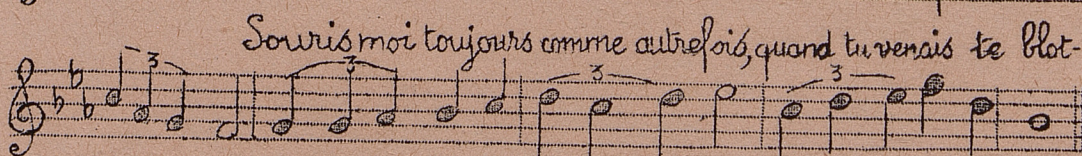 Souris moi toujours comme autrefois, quand tu venais te blot-
3 3 3 3